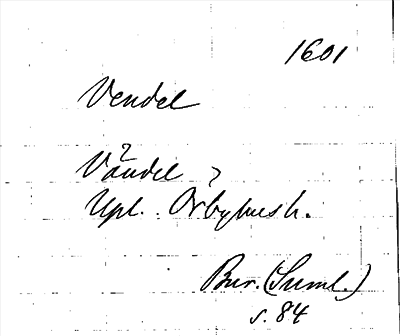 1601
Vendel
Vändel ?
Upl. Örbyhus h.
Bur. (Suml.)
s. 84